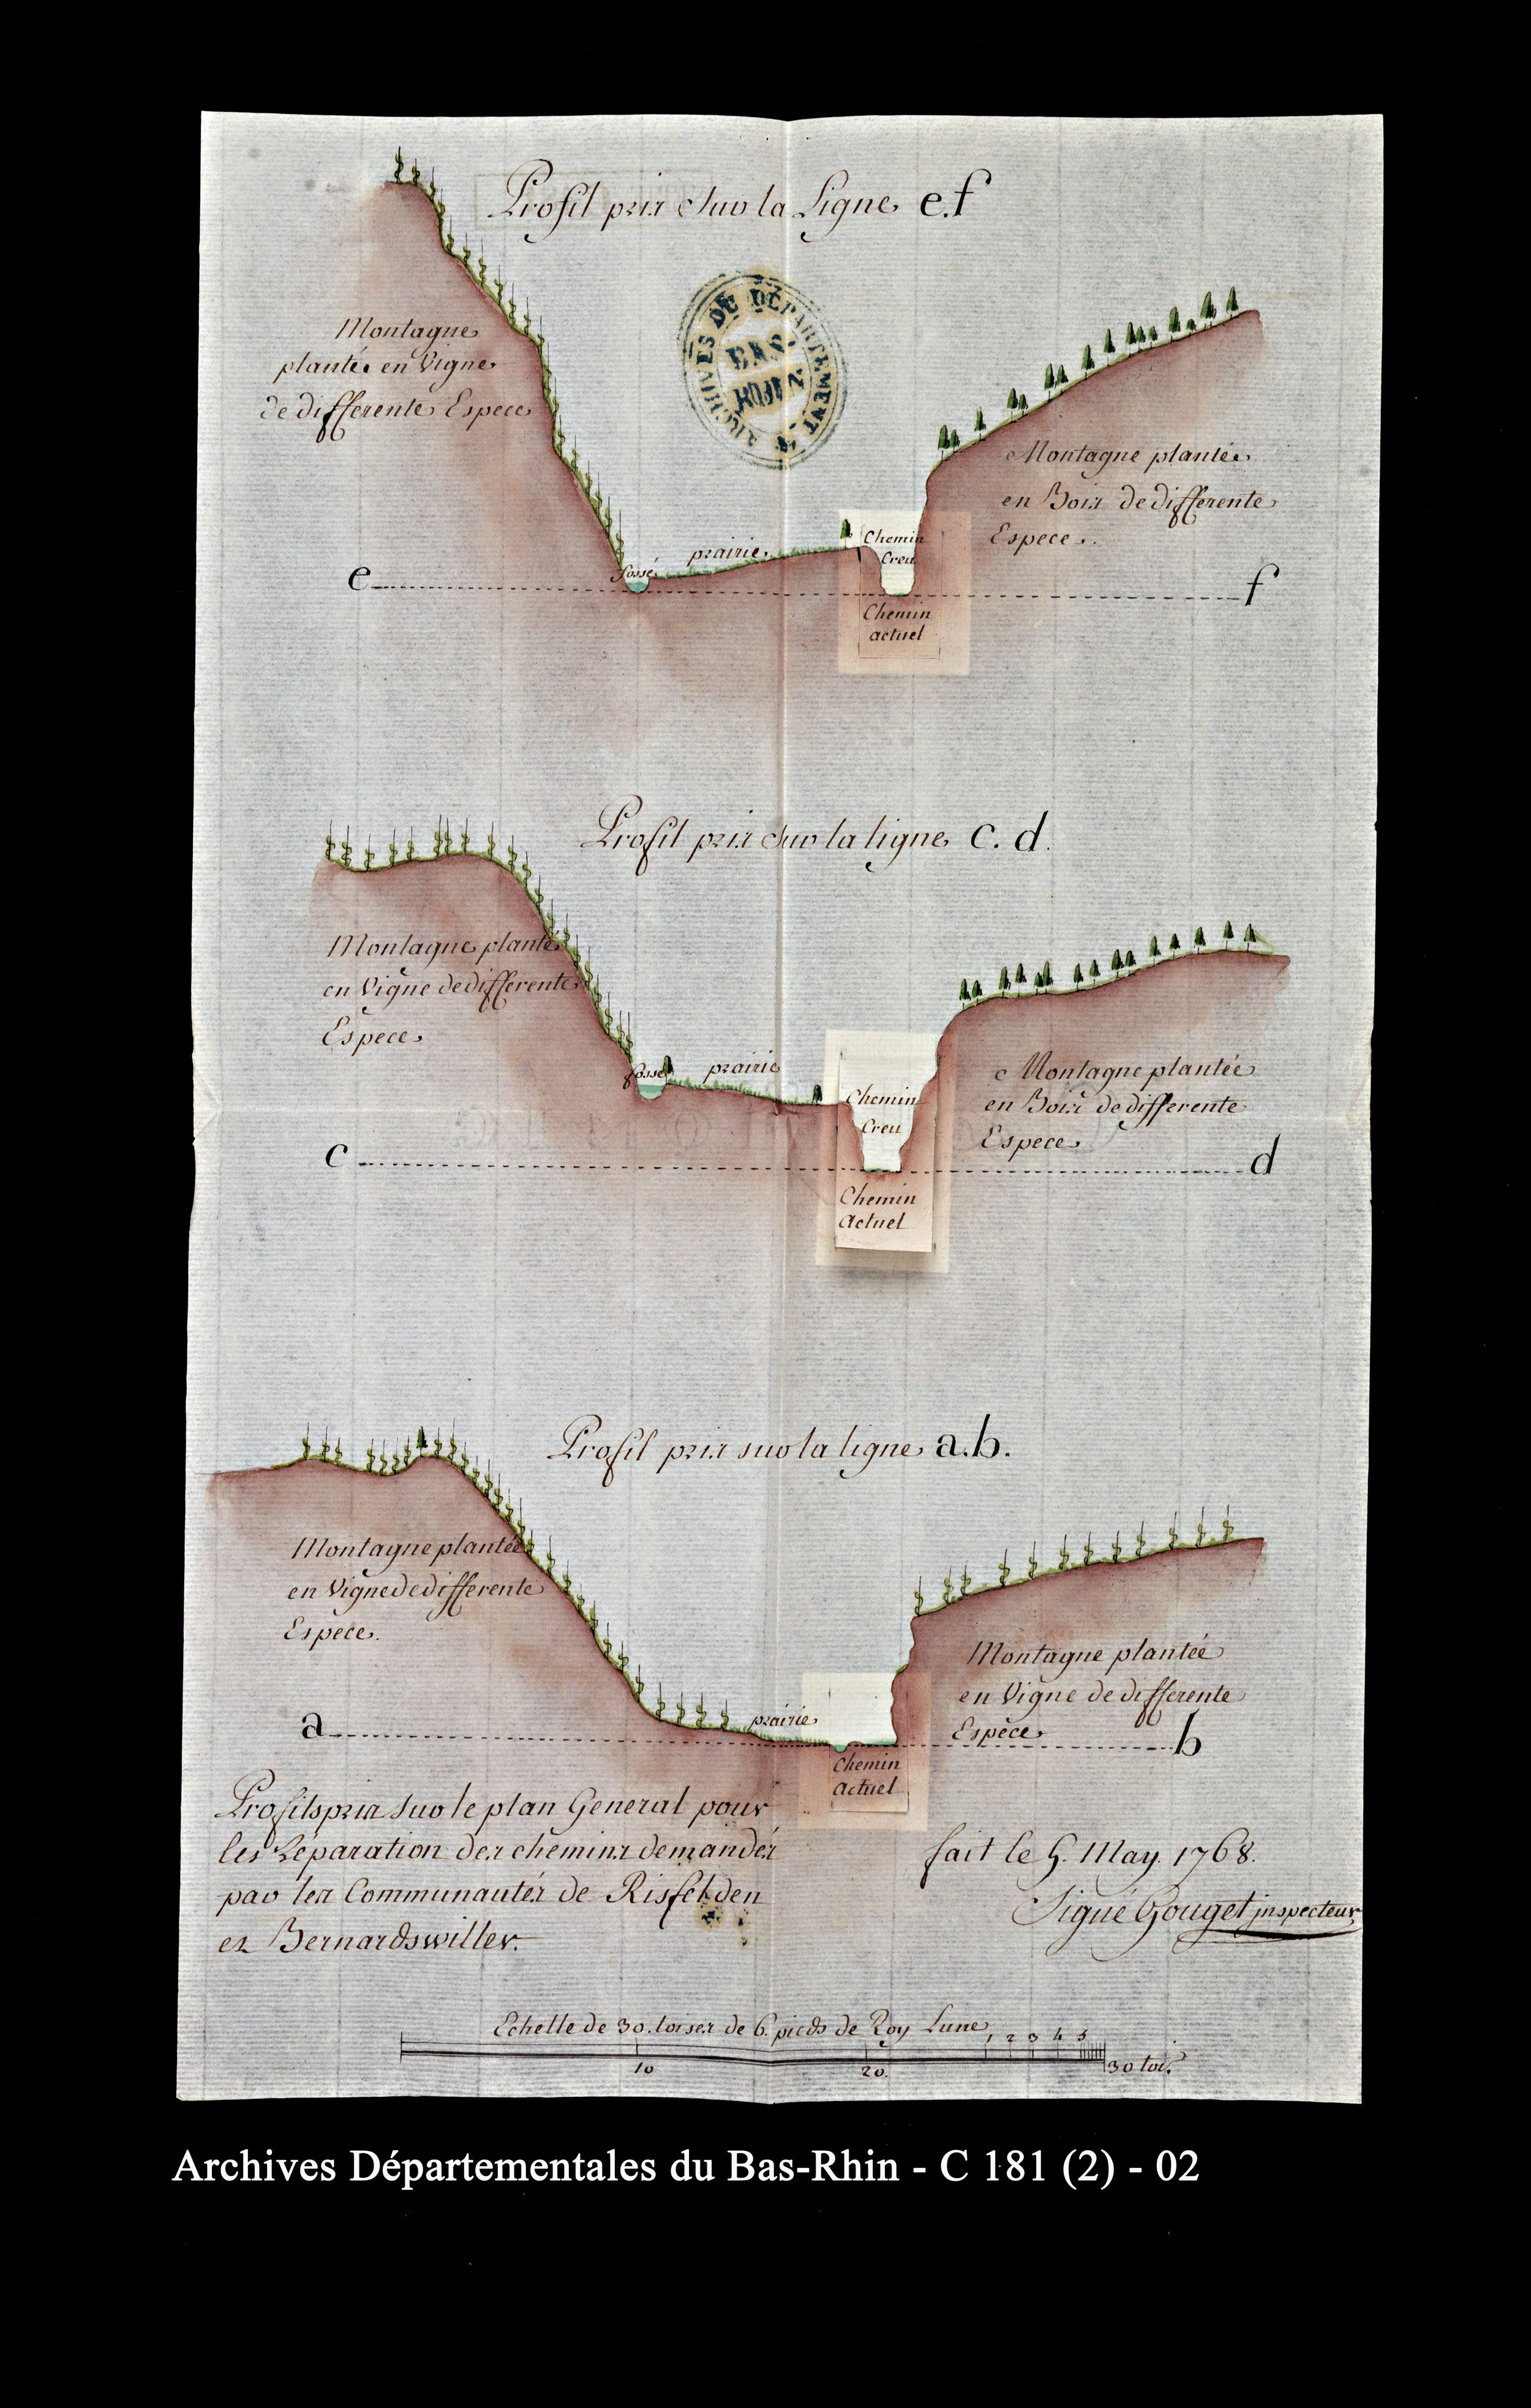 Profil pris sur la Ligne e.f
ARCHIVES DU DÉPARTEMENT
BAS
RHIN
Montagne
plantée en Vigne
de differente Espece
Montagne plantée
en Bois de differente
Espece.
Chemin
Creu
prairie
fossé
e
f
Chemin
actuel
Profil pris sur la ligne c. d.
Montagne planté
en Vigne de differente
Espece
fossé
prairie
Chemin
Creu
Montagne plantée
en Bois de differente
Espece
c
d
Chemin
Actuel
Profil pris sur la ligne a.b.
Montagne plantée
en Vigne de differente
Espece.
Montagne plantée
en Vigne de differente
Espece
prairie
a
b
Chemin
actuel
Profils pris sur le plan General pour
les Réparation des chemins demandés
par les Communautés de Risfelden
et Bernardswiller.
fait le 5. May. 1768.
Signé Gouget inspecteur
Echelle de 30. toises de 6. pieds de Roy Lune
1 2 3 4 5
10 20. 30 tois.
Archives Départementales du Bas-Rhin - C 181 (2) - 02